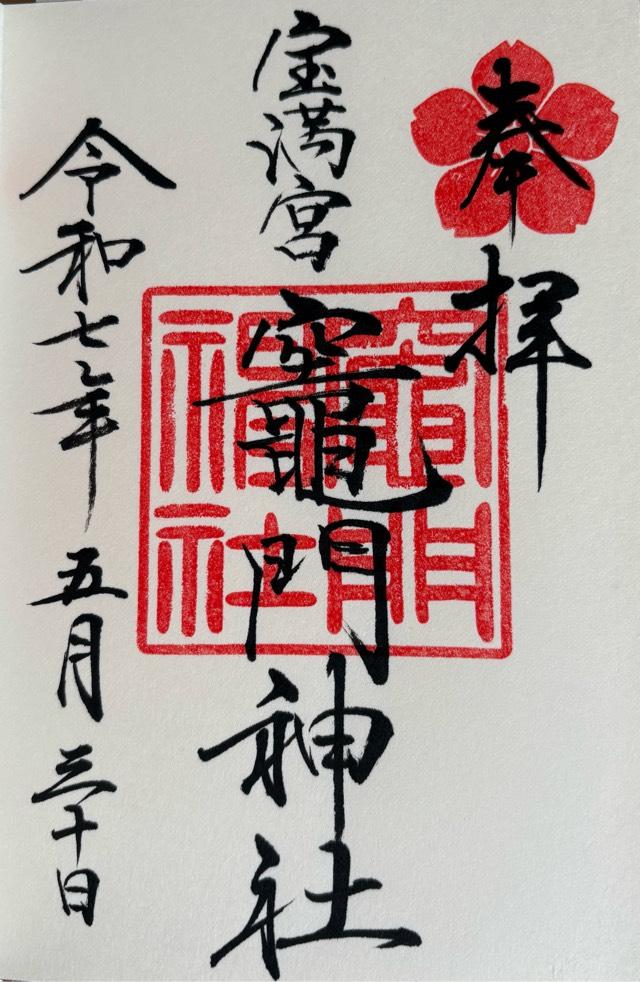 奉拝
宝満宮
竈門神社
竈門神社
令和七年 五月 三十日